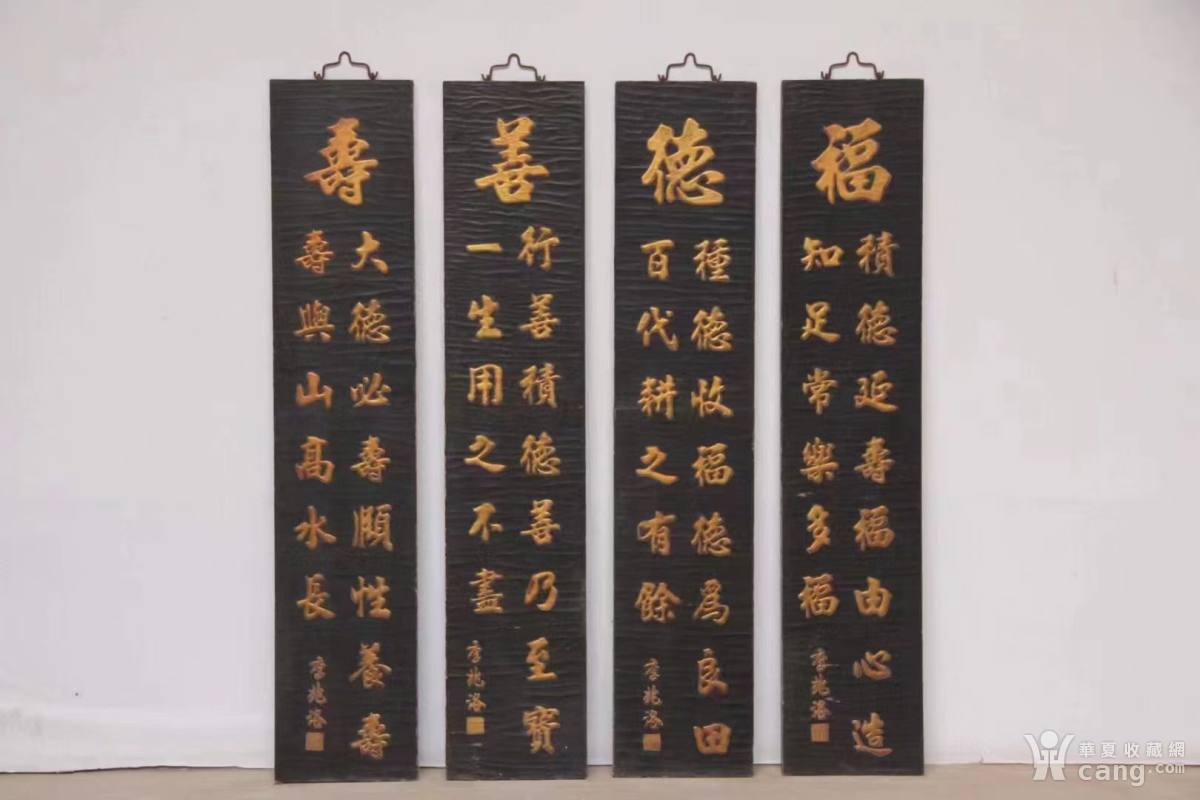 福
積德延壽福由心造
知足常樂多福
李兆洛
德
種德收福德為良田
百代耕之有餘
李兆洛
善
行善積德善乃至寶
一生用之不盡
李兆洛
壽
大德必壽頤性養壽
壽與山高水長
李兆洛
華夏收藏網
cang.com